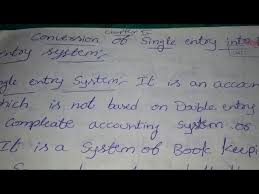 Chapter 5
Convession of Single entry into
entry system:-
gle entry System:- It is an accoun
hich is not based on Double entry
Compleate accounting system so
It is a System of Book keepi